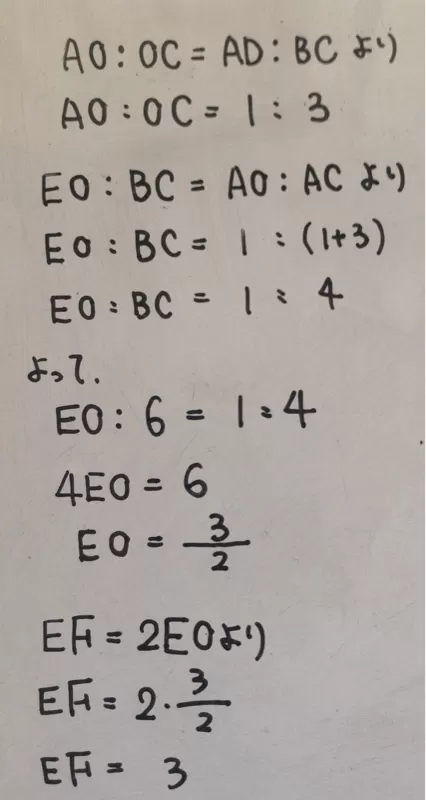 AO : OC = AD : BC より
AO : OC = 1 : 3
EO : BC = AO : AC より
EO : BC = 1 : (1+3)
EO : BC = 1 : 4
よって、
EO : 6 = 1 : 4
4EO = 6
EO = 3/2
EF = 2EOより
EF = 2・3/2
EF = 3